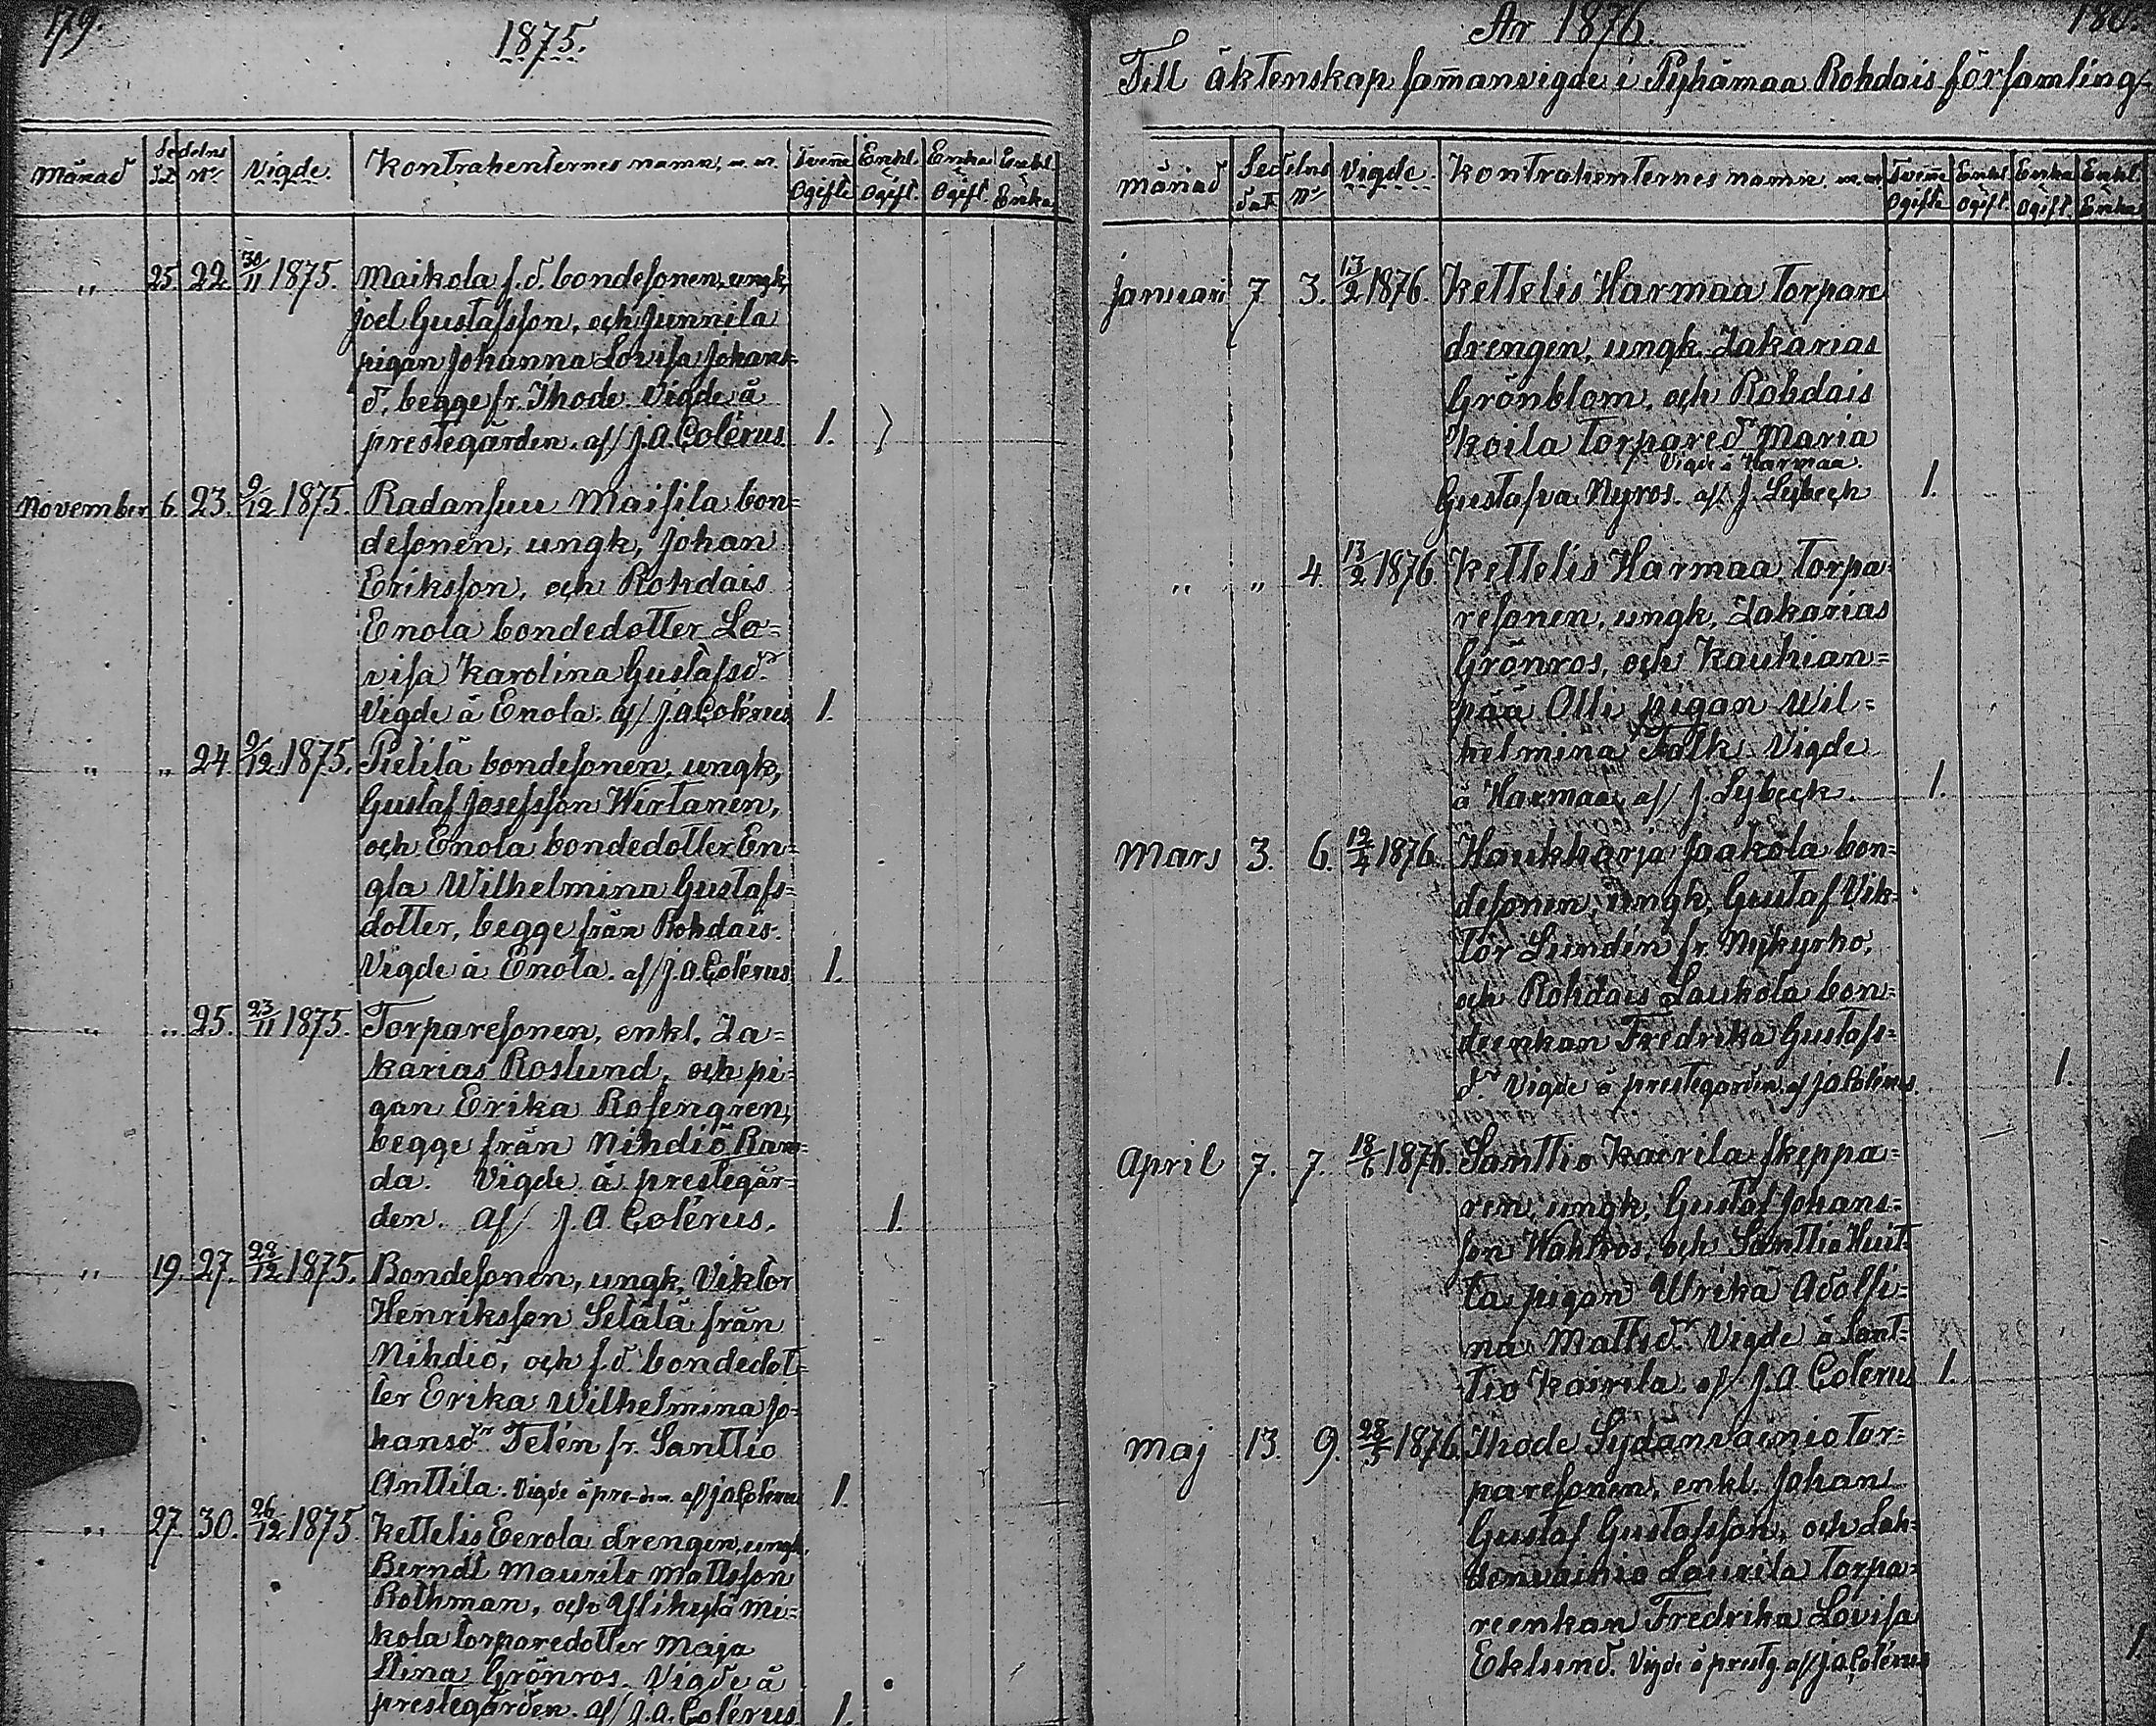 179.
1875.
Månad
Sedelns
Dat
Nr
Vigde.
Kontrahenternes namn, m. m.
Tvenne Ogifte
Enkl. o Ogift.
Enka o Ogift.
Enkl. o Enka
" 25 22. 30/11 1875. Maikola f.d. bondesonen, ungk,
Joel Gustafsson, och Junnila
pigan Johanna Lovisa Johans=
d. begge fr. Ihode. Vigde å
prestegården. af/ J.A. Colérus 1.
November 6. 23. 9/12 1875. Radansuu Maisila bon=
desonen, ungk, Johan
Eriksson, och Rohdais
Enola bondedotter Lo=
visa Karolina Gustafsdr.
Vigde å Enola. af/ J.A. Colérus 1.
" " 24. 9/12 1875. Pietilä bondesonen, ungk,
Gustaf Josefsson Wirtanen,
och Enola bondedotter En=
gla Wilhelmina Gustafs=
dotter, begge från Rohdais.
Vigde å Enola. af/ J.A. Colérus 1.
" " 25. 23/11 1875. Torparesonen, enkl. Za=
karias Roslund, och pi=
gan Erika Rosengren,
begge från Nihdiö Ran=
da. Vigde å prestegår=
den. af/ J.A. Colérus. 1.
" 19. 27. 28/12 1875. Bondesonen, ungk, Viktor
Henriksson Setälä från
Nihdiö, och f.d. bondedot=
ter Erika Wilhelmina Jo=
hansdr Telén fr. Santtio
Anttila. Vigde å pre-den. af/ J.A. Colérus 1.
" 27. 30. 26/12 1875. Kettelis Eerola drengen, ungk.
Berndt Maurits Mattsson
Rothman, och Ylikylä Mi=
kola torparedotter Maja
Stina Grönros. Vigde å
prestegården. af/ J.A. Colérus 1.
180.
År 1876.
Till äktenskap sam̄anvigde i Pyhämaa Rohdais församling
Månad
Sedelns
Dat
Nr
Vigde.
Kontrahenternes namn. m.m.
Tvenne Ogifte
Enkl. o Ogift.
Enka o Ogift.
Enkl. o Enka
Januari 7 3. 13/2 1876. Kettelis Harmaa torpare
drengen, ungk. Zakarias
Grönblom, och Rohdais
Koila torpared. Maria
Vigde å Harmaa.
Gustafva Nyros. af/ J. Lybeck 1.
" " 4. 13/2 1876. Kettelis Harmaa torpa=
resonen, ungk, Zakarias
Grönros, och Kauhian=
pää Olli pigan Wil=
helmina Falk. Vigde
å Harmaa, af/ J. Lybeck. 1.
Mars 3. 6. 12/4 1876. Haukkarja Jaakola bon=
desonen, ungk, Gustaf Vik=
tor Lundén fr. Nykyrko,
och Rohdais Laukola bon=
deenkan Fredrika Gustafs=
dr. Vigde å prestegården af J.A. Colérus. 1.
April 7. 7. 18/6 1876. Santtio Kairila skeppa=
ren, ungk, Gustaf Johans=
son Wahlros, och Santtio Huit=
ta pigan Ulrika Adolfi=
na Mattsdr. Vigde å Sant=
tio Kairila. af/ J.A. Colérus 1.
Maj 13. 9. 28/5 1876. Ihode Sydänvainio tor=
paresonen, enkl. Johan
Gustaf Gustafsson, och Lah=
denvainio Laurila torpa=
reenkan Fredrika Lovisa
Eklund. Vigde å prestg. af/ J.A. Colérus 1.